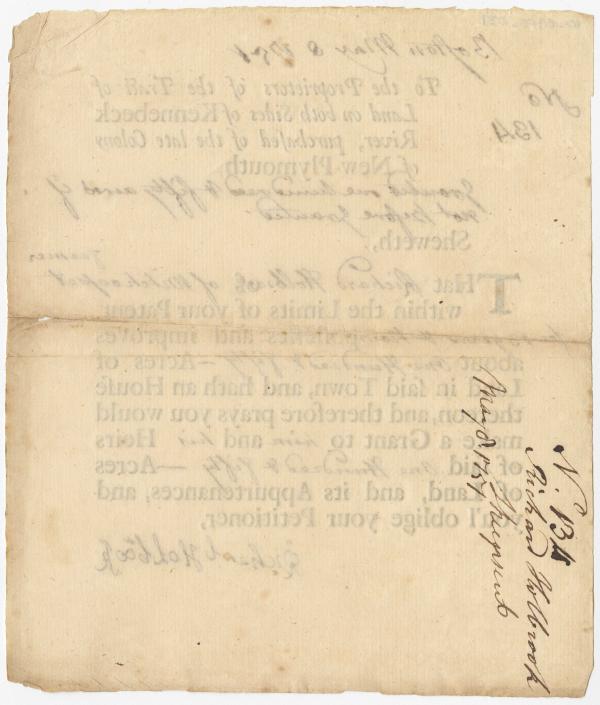 Boston May 8
No
134
To the Proprietors of the Tract of
Land on both Sides of Kennebeck
River, purchased of the late Colony
of New-Plymouth
Granted one hundred & fifty acres if
not before granted
Sheweth,
THat Richard Holbrook of
within the Limits of your Patent
and improves
about one Hundred & fifty — Acres of
Land in said Town, and hath an House
thereon, and therefore prays you would
make a Grant to him and his Heirs
of said one Hundred & fifty — Acres
of Land, and its Appurtenances, and
you'l oblige your Petitioner,
Richard Holbrook
N. 134
Richard Holbrook
May 8